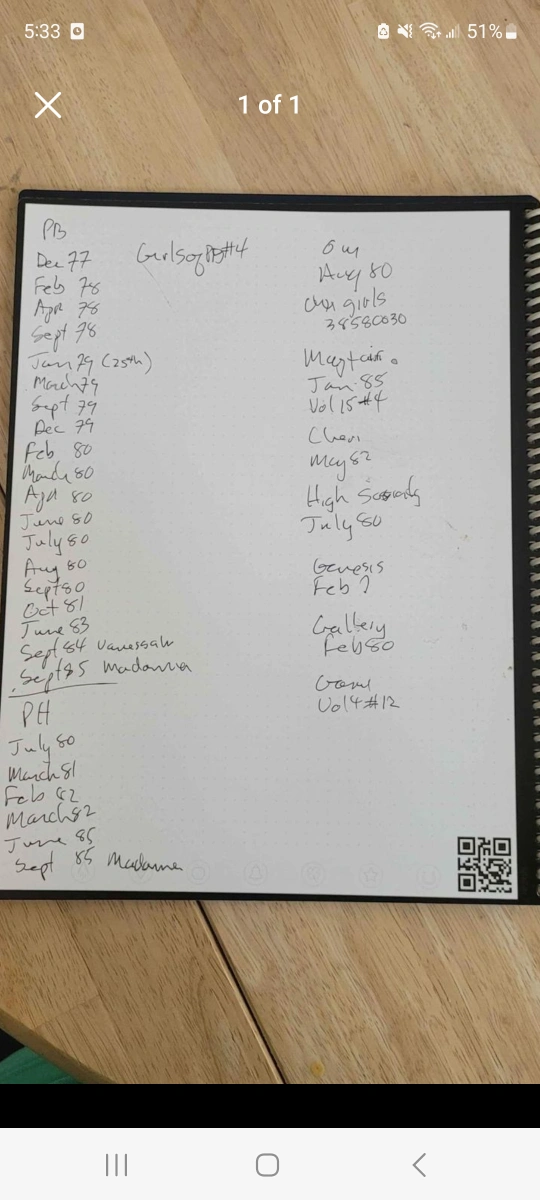 5:33
51%
1 of 1
PB
Dec 77
Feb 78
Apr 78
Sept 78
Jan 79 (25th)
March 79
Sept 79
Dec 79
Feb 80
March 80
Apr 80
June 80
July 80
Aug 80
Sept 80
Oct 81
June 83
Sept 84 Vanessa
Sept 85 Madonna
PH
July 80
March 81
Feb 82
March 82
June 85
Sept 85 Madonna
Girls of PB #4
Oui
Aug 80
girls
Mayfair
Jan 85
Vol 15 #4
Cheri
May 82
High Society
July 80
Genesis
Feb ?
Gallery
Feb 80
Vol 4 #12